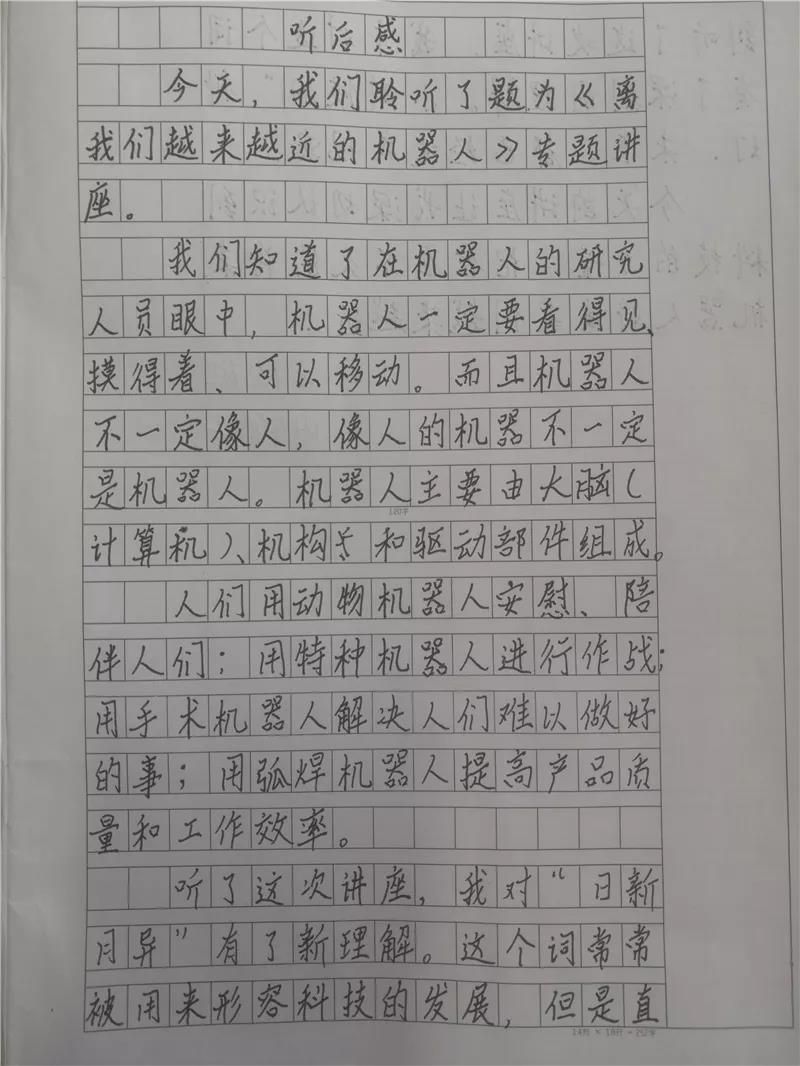 听后感
今天，我们聆听了题为《离
我们越来越近的机器人》专题讲
座。
我们知道了在机器人的研究
人员眼中，机器人一定要看得见、
摸得着、可以移动。而且机器人
不一定像人，像人的机器不一定
是机器人。机器人主要由大脑（
120字
计算机）、机构、和驱动部件组成。
人们用动物机器人安慰、陪
伴人们；用特种机器人进行作战；
用手术机器人解决人们难以做好
的事；用弧焊机器人提高产品质
量和工作效率。
听了这次讲座，我对“日新
月异”有了新理解。这个词常常
被用来形容科技的发展，但是直
14行×18行=252字